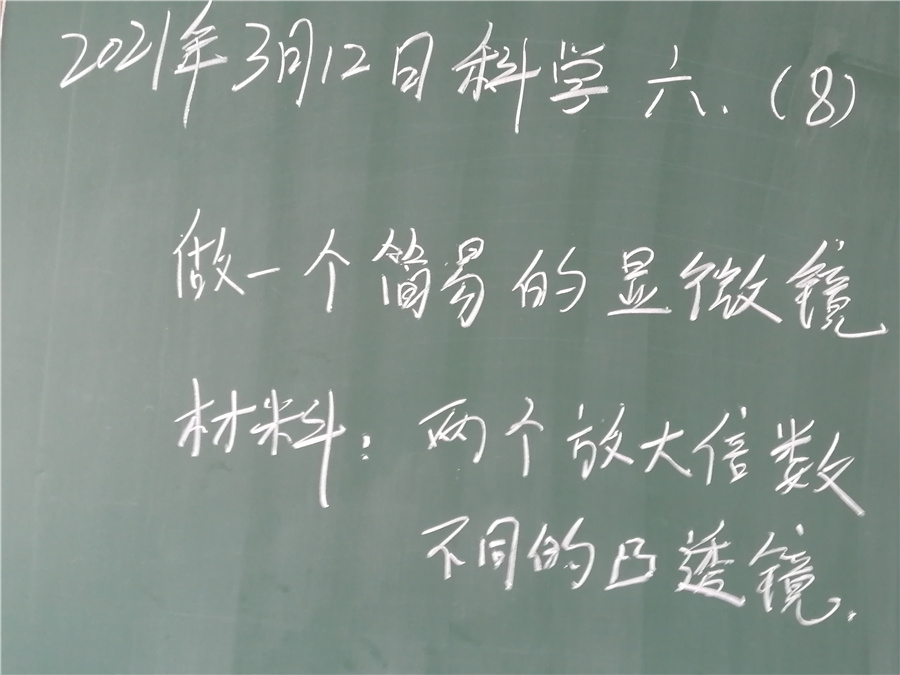 2021年3月12日科学六.(8)
做一个简易的显微镜
材料:两个放大倍数
不同的凸透镜.